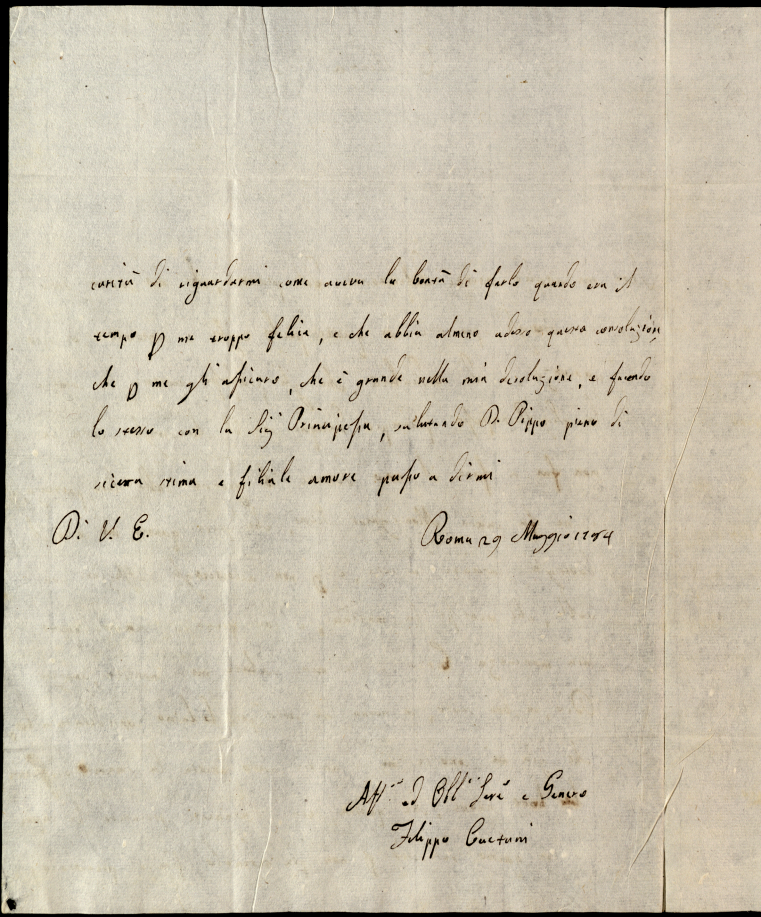 carità di riguardarmi come aveva la bontà di farlo quando era il
tempo p me troppo felice, e che abbia almeno adesso questa consolazione,
che p me gli assicuro, che è grande nella mia desolazione, e facendo
lo stesso con la Sig Principessa, salutando D. Pippo pieno di
sicera stima e filiale amore passo a dirmi
Di V. E.
Roma 29 Maggio
Aff.mo ed Obb.mo Serv e Genero
Filippo Caetani